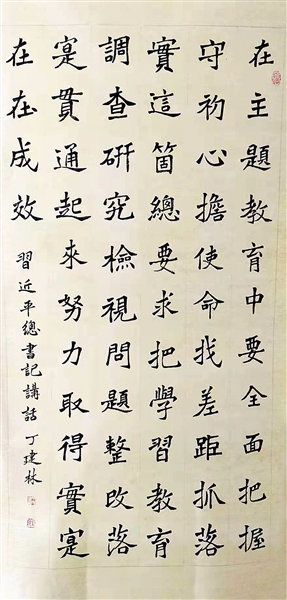 在主題教育中要全面把握
守初心擔使命找差距抓落
實這箇總要求把學習教育
調查研究檢視問題整改落
寔貫通起來努力取得實寔
在在成效
習近平總書記講話 丁建林